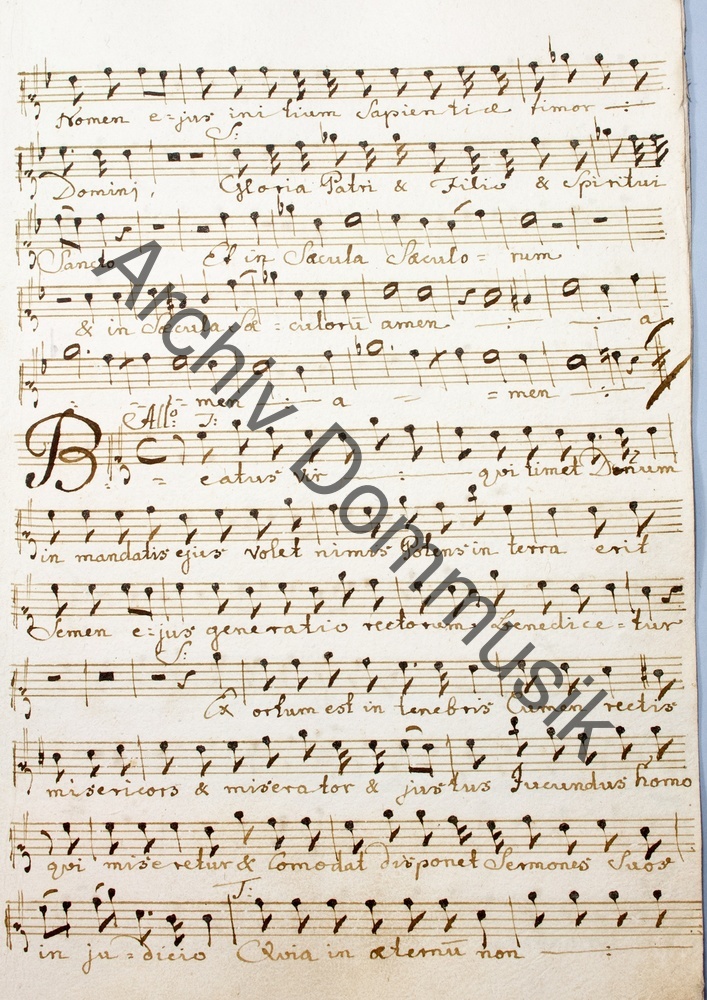 Nomen e-jus initium Sapientiæ timor
S:
Domini, Gloria Patri & Filio & Spiritui
Sancto Et in Sæcula Sæculo = rum
& in Sæcula Sæ - culorū amen a
men a = men
All:º T:
B = eatus vir qui timet
in mandatis ejus volet nimis Potens in terra erit
Semen e-jus generatio rectorum benedice = tur
S:
Ex ortum est in tenebris Lumen rectis
misericors & miserator & justus Jucundus homo
qui miseretur & Comodat disponet Sermones Suos
T:
in ju = dicio Quia in æternū non
Archiv Dommusik